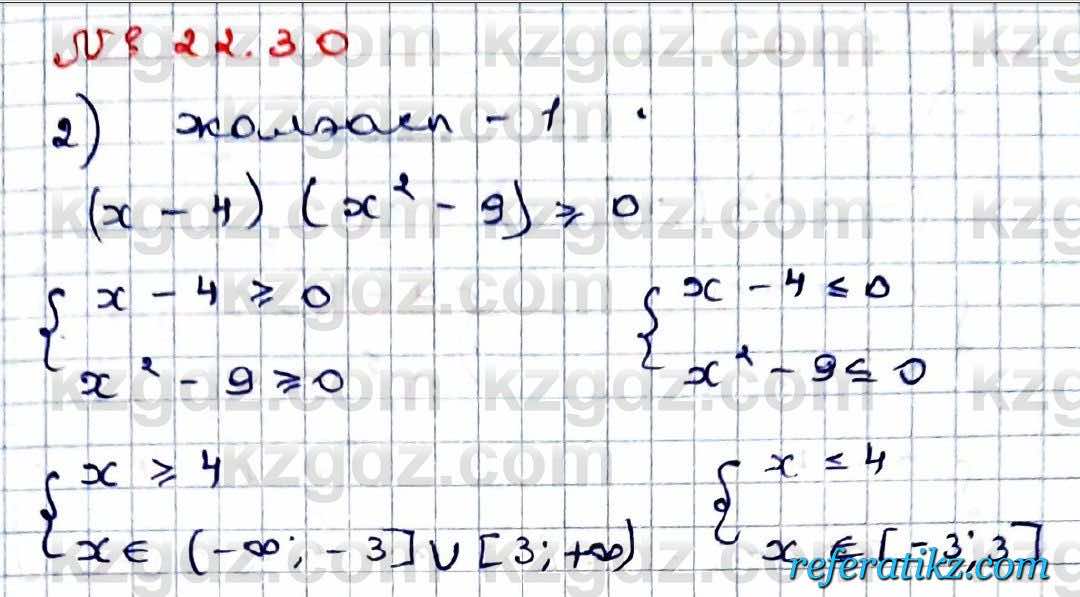 № 22.30
2) жалғасп - 1
(x - 4) (x² - 9) ≥ 0
{ x - 4 ≥ 0
x² - 9 ≥ 0
{ x - 4 ≤ 0
x² - 9 ≤ 0
{ x ≥ 4
x ∈ (-∞; -3] ∪ [3; +∞)
{ x ≤ 4
x ∈ [-3; 3]
kzgdz.com
referatikz.com